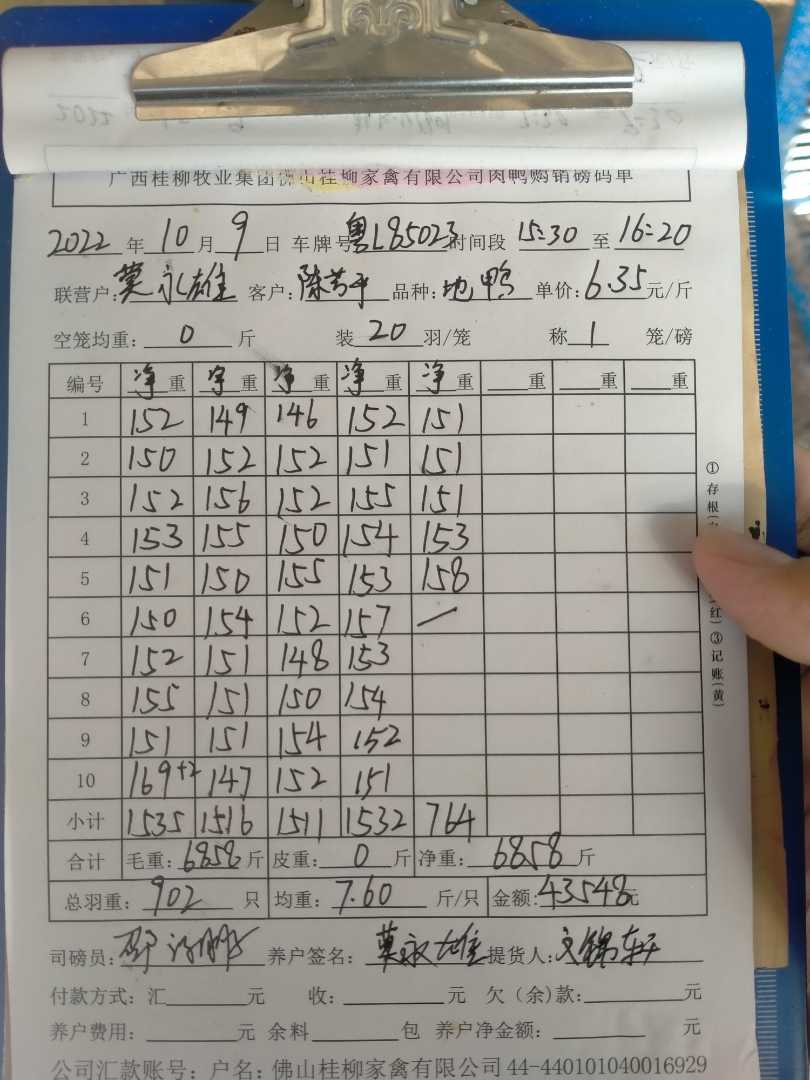 广西桂柳牧业集团佛山桂柳家禽有限公司肉鸭购销磅码单
2022年10月9日 车牌号粤L85023时间段 15:30至16:20
联营户:莫永雄 客户:陈芳平 品种:地鸭 单价:6.35元/斤
空笼均重:0斤 装20羽/笼 称1笼/磅
编号 净重 净重 净重 净重 净重 重 重 重
1 152 149 146 152 151
2 150 152 152 151 151
3 152 156 152 155 151
4 153 155 150 154 153
5 151 150 155 153 158
6 150 154 152 157 —
7 152 151 148 153
8 155 151 150 154
9 151 151 154 152
10 169+2 147 152 151
小计 1535 1516 1511 1532 764
合计 毛重:6858斤 皮重:0斤 净重:6858斤
总羽重:902只 均重:7.60斤/只 金额:43548元
司磅员: 养户签名:莫永雄 提货人:文锦轩
付款方式:汇 元 收: 元 欠(余)款: 元
养户费用: 元 余料 包 养户净金额: 元
公司汇款账号:户名:佛山桂柳家禽有限公司44-440101040016929
①存根(
红)③记账(黄)